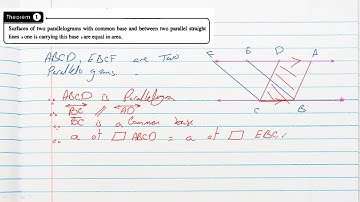 Theorem 1
Surfaces of two parallelograms with common base and between two parallel straight
lines , one is carrying this base , are equal in area.
ABCD, EBCF are two
Parallelograms.
F E D A
C B
∵ ABCD is Parallelogram
∴ BC // AD
∵ BC is a Common base
∴ a of ▱ ABCD = a of ▱ EBC